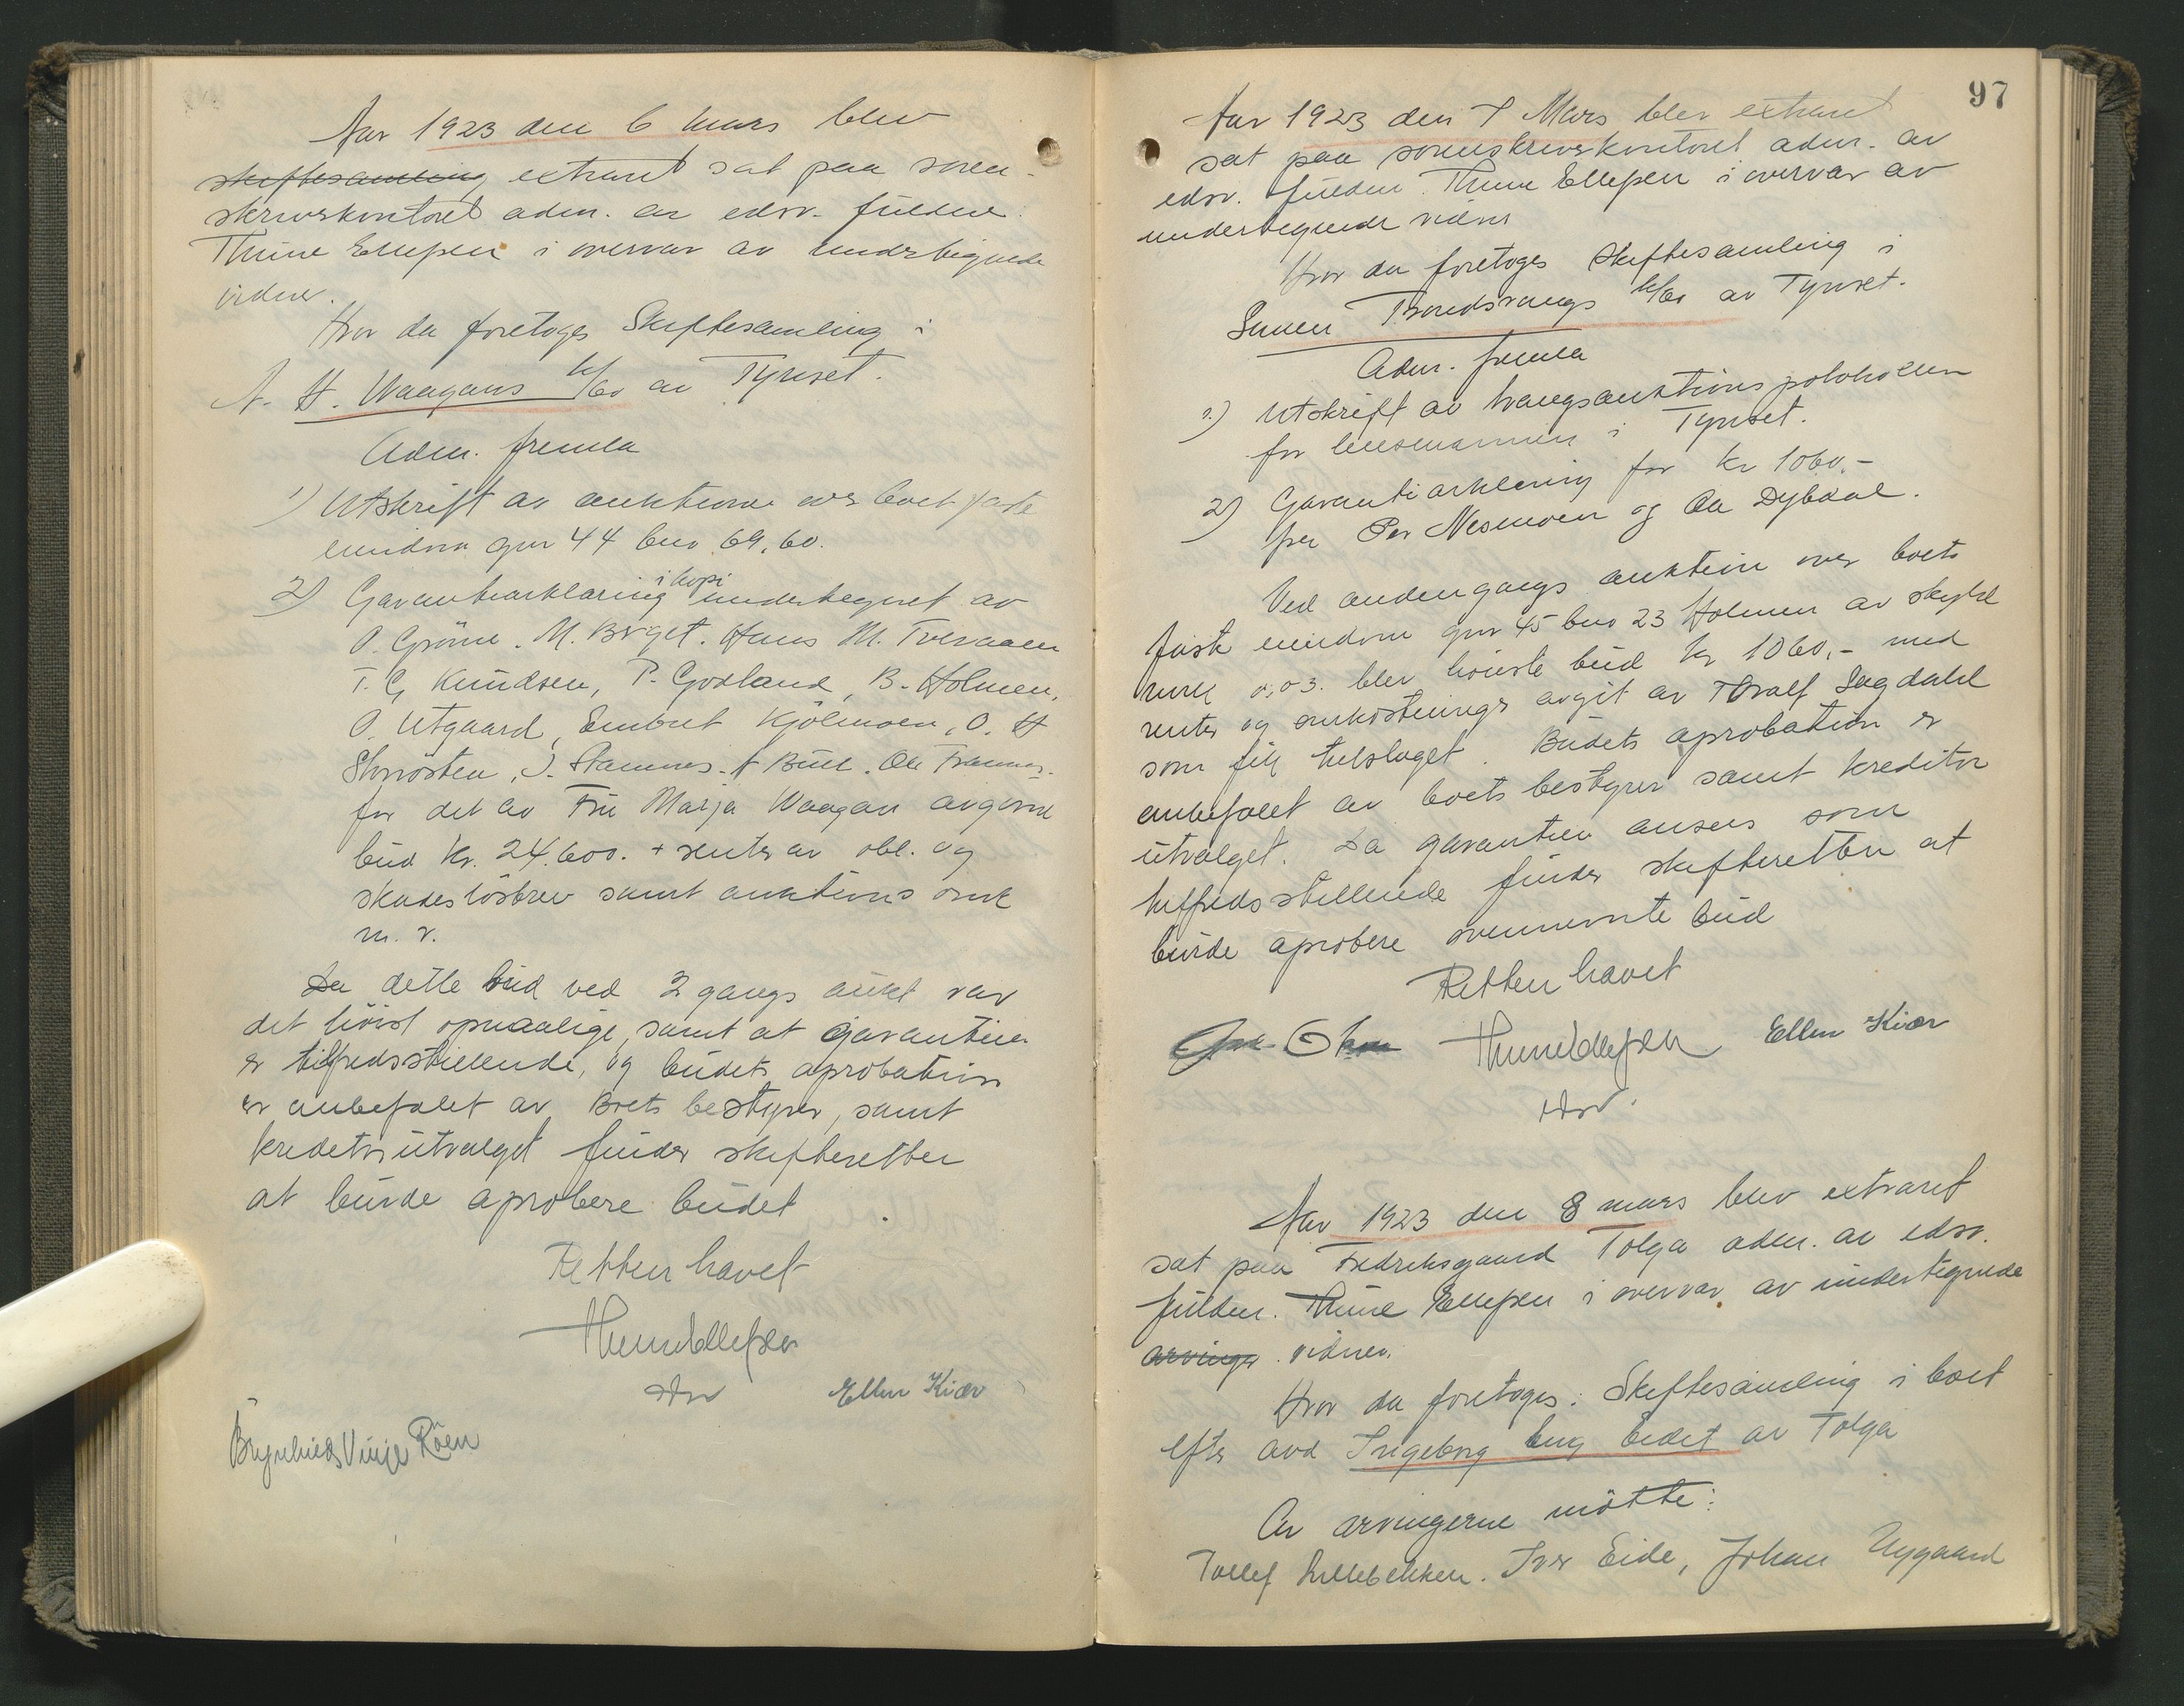 Aar 1923 den 6 mars blev
skiftesamling extraret sat paa soren-
skriverkontoret adm. av edsv. fuldm.
Thune Ellefsen i overvær av undertegnede
vidner.
Hvor da foretoges Skiftesamling i
A. H. Waagans k/bo av Tynset.
Adm. fremla
1) Utskrift av auktionen over boets faste
eiendom gnr 44 bno 69,60.
2) Garantierklæring i kopi undertegnet av
O. Gröne. M. Borget. Hans M. Tveraaen
T. G. Knudsen, P. Godland, B. Holmen,
O. Utgaard, Embret Kjölmoen, O. H
Stnösten, J. Stamnes. A Bull. Ole
for det av Fru Marja Waagan avgivne
bud kr. 24.600. + renter av obl. og
skadeslösbrev samt auktions omk
m. v.
Da dette bud ved 2 gangs aukt var
det höist opnaalige, samt at garantien
er tilfredsstillende, og budets aprobation
er anbefalet av Boets bestyrer, samt
kreditorutvalget finder skifteretten
at burde aprobere budet
Retten hævet
Thune Ellefsen
edsv
Ellen Kiær
Brynhild Vinje Röen
97
Aar 1923 den 7 Mars blev extraret
sat paa sorenskriverkontoret adm. av
edsv. fuldm. Thune Ellefsen i overvær av
undertegnede vidner
Hvor da foretoges Skiftesamling i
Simen Trondsvangs k/bo av Tynset.
Adm. fremla
1.) Utskrift av tvangsauktionsprotokollen
for lensmannen i Tynset.
2) Garantierklæring for kr 1060.-
fra Per Nesmoen og Ola Dybdal.
Ved andengangs auktion over boets
faste eiendom gnr 45 bno 23 Holmen av skyld
mrk 0,03. blev höieste bud kr 1060,- med
renter og omkostninger avgit av Thoralf Sagdahl
som fik tilslaget. Budets aprobation er
anbefalet av boets bestyrer samt kreditor
utvalget. Da garantien ansees som
tilfredsstillende finder skifteretten at
burde aprobere ovennevnte bud
Retten hævet
Thune Ellefsen Ellen Kiær
edsv.
Aar 1923 den 8 mars blev extraret
sat paa Fredriksgaard Tolga adm. av edsv.
fuldm. Thune Ellefsen i overvær av undertegnede
arvinger. vidner.
Hvor da foretoges: Skiftesamling i boet
efter avd Ingeborg Eng Eidet av Tolga
Av arvingerne mötte:
Tollef Lillebekken. Iver Eide, Johan Nygaard